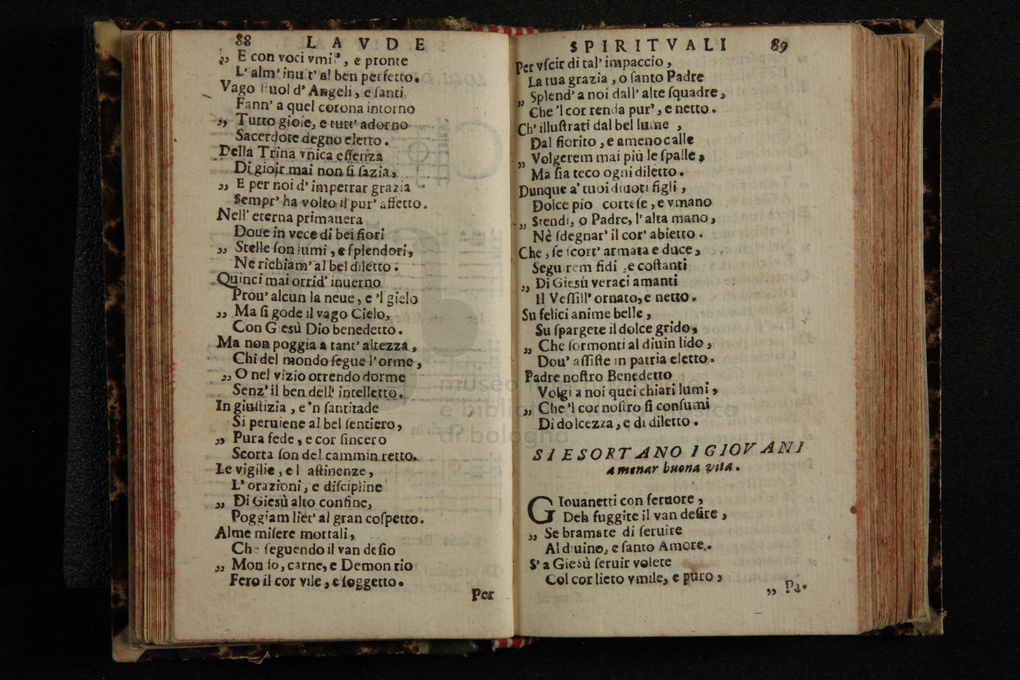 88 LAVDE
„ E con voci vmil', e pronte
L'alm' inuit' al ben perfetto.
Vago stuol d'Angeli, e santi
Fann' a quel corona intorno
„ Tutto gioie, e tutt' adorno
Sacerdote degno eletto.
Della Trina vnica essenza
Di gioir mai non si sazia,
„ E per noi d'impetrar grazia
Sempr' ha volto il pur' affetto.
Nell' eterna primauera
Doue in vece di bei fiori
„ Stelle son lumi, e splendori,
Ne richiam' al bel diletto.
Quinci mai orrid' inuerno
Prou' alcun la neue, e 'l gielo
„ Ma si gode il vago Cielo,
Con Giesù Dio benedetto.
Ma non poggia a tant' altezza,
Chi del mondo segue l'orme,
„ O nel vizio orrendo dorme
Senz' il ben dell' intelletto.
In giustizia, e 'n santitade
Si peruiene al bel sentiero,
„ Pura fede, e cor sincero
Scorta son del cammin retto.
Le vigilie, e l astinenze,
L'orazioni, e discipline
„ Di Giesù alto confine,
Poggiam liet' al gran cospetto.
Alme misere mortali,
Che seguendo il van desio
„ Mondo, carne, e Demon rio
Fero il cor vile, e soggetto.
Per
SPIRITVALI 89
Per vscir di tal' impaccio,
La tua grazia, o santo Padre
„ Splend' a noi dall' alte squadre,
Che 'l cor renda pur', e netto.
Ch' illustrati dal bel lume,
Dal fiorito, e ameno calle
„ Volgerem mai più le spalle,
Ma sia teco ogni diletto.
Dunque a' tuoi diuoti figli,
Dolce pio cortese, e vmano
„ Stendi, o Padre, l'alta mano,
Nè sdegnar' il cor' abietto.
Che, se scort' armata e duce,
Seguirem fidi, e costanti
„ Di Giesù veraci amanti
Il Vessill' ornato, e netto.
Su felici anime belle,
Su spargete il dolce grido,
„ Che sormonti al diuin lido,
Dou' assiste in patria eletto.
Padre nostro Benedetto
Volgi a noi quei chiari lumi,
„ Che 'l cor nostro si consumi
Di dolcezza, e di diletto.
SI ESORTANO I GIOVANI
a menar buona vita.
GIouanetti con feruore,
Deh fuggite il van desire,
„ Se bramate di seruire
Al diuino, e santo Amore.
S' a Giesù seruir volete
Col cor lieto vmile, e puro,
„ Pa-
museo
e biblioteca
di bologna